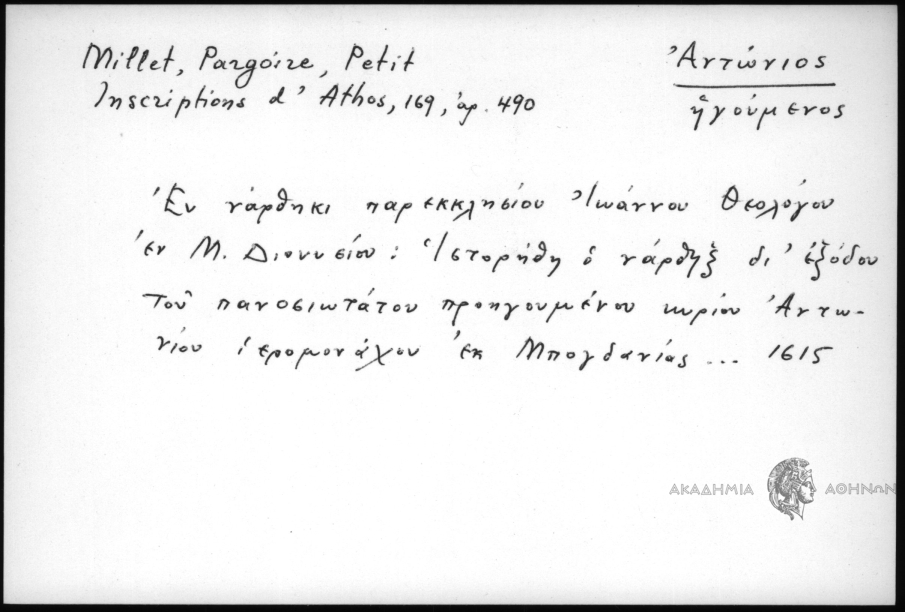 Millet, Pargoire, Petit
Inscriptions d' Athos, 169, ἀρ. 490
Ἀντώνιος
ἡγούμενος
Ἐν νάρθηκι παρεκκλησίου Ἰωάννου Θεολόγου
ἐν Μ. Διονυσίου : Ἱστορήθη ὁ νάρθηξ δι' ἐξόδου
τοῦ πανοσιωτάτου προηγουμένου κυρίου Ἀντω-
νίου ἱερομονάχου ἐκ Μπογδανίας ... 1615
ΑΚΑΔΗΜΙΑ ΑΘΗΝΩΝ